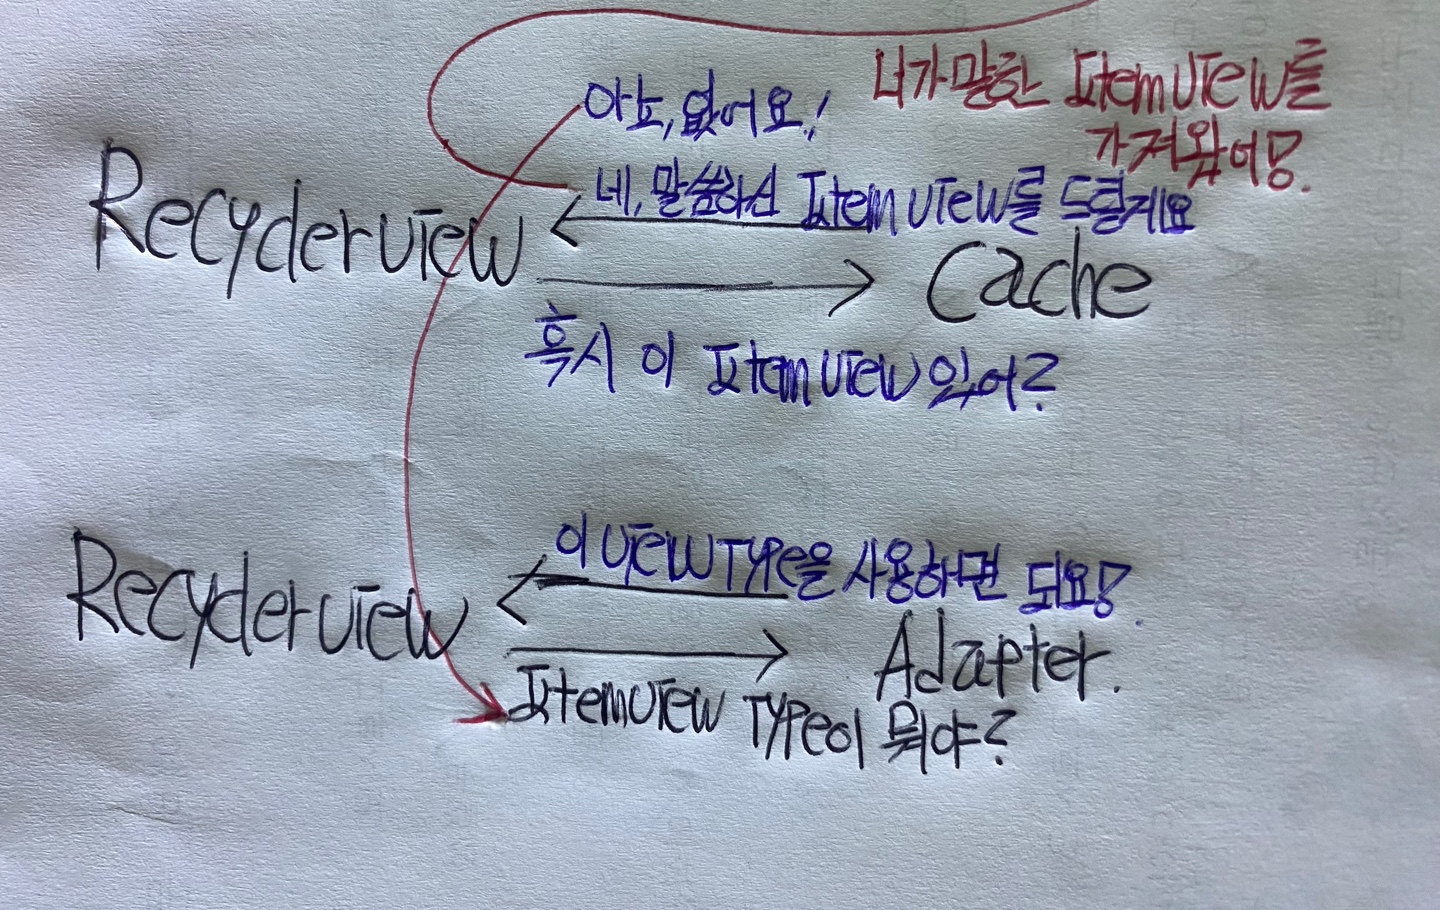 너가 말한 ItemView를
가져왔어!
아뇨, 없어요!
네, 말씀하신 ItemView를 드릴게요
RecyclerView
Cache
혹시 이 ItemView 있어?
이 ViewType을 사용하면 되요!
RecyclerView
Adapter.
ItemView Type이 뭐야?